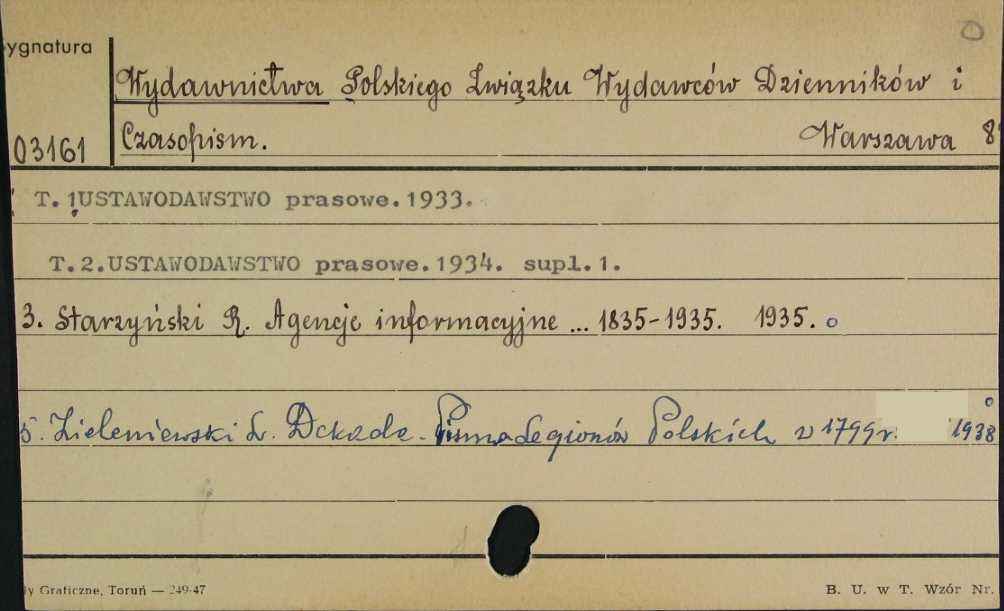 ygnatura
Wydawnictwa Polskiego Związku Wydawców Dzienników i
03161 Czasopism. Warszawa 8°
T. 1USTAWODAWSTWO prasowe.1933.
T.2.USTAWODAWSTWO prasowe.1934. supl.1.
3. Starzyński R. Agencje informacyjne ... 1835-1935. 1935. o
5. Zieleniewski L. Dekada. Pismo Legionów Polskich z 1799r. 1938
y Graficzne, Toruń — 249-47 B. U. w T. Wzór Nr.